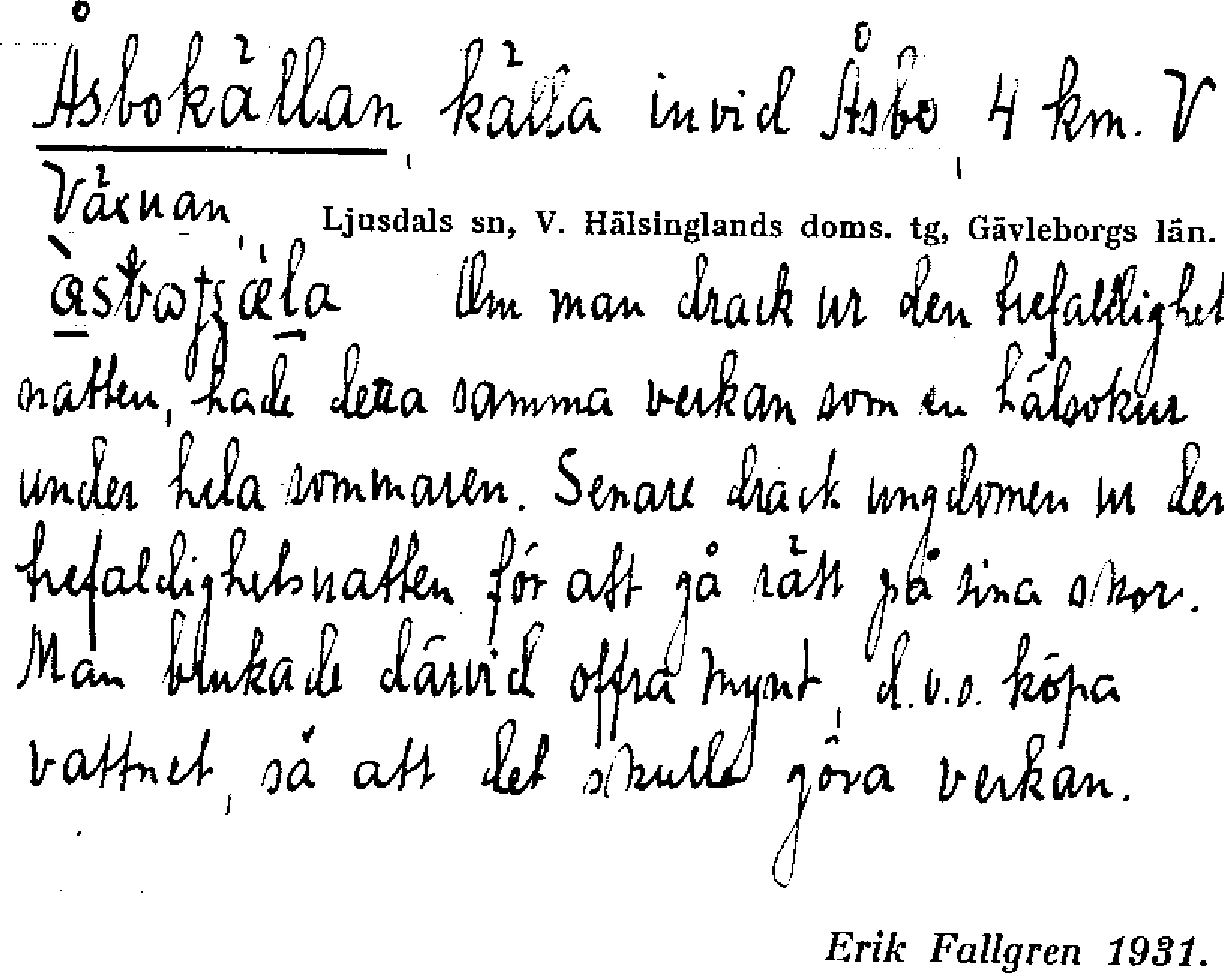 Åsbokällan, källa invid Åsbo, 4 km. V
Växnan,
Ljusdals sn, V. Hälsinglands doms. tg, Gävleborgs län.
Om man drack ur den trefaldighet
natten, hade detta samma verkan som en hälsokur
under hela sommaren. Senare drack ungdomen ur den
trefaldighetsnatten för att gå rätt på sina skor.
Man brukade därvid offra mynt, d.v.s. köpa
vattnet, så att det skulle göra verkan.
Erik Fallgren 1931.